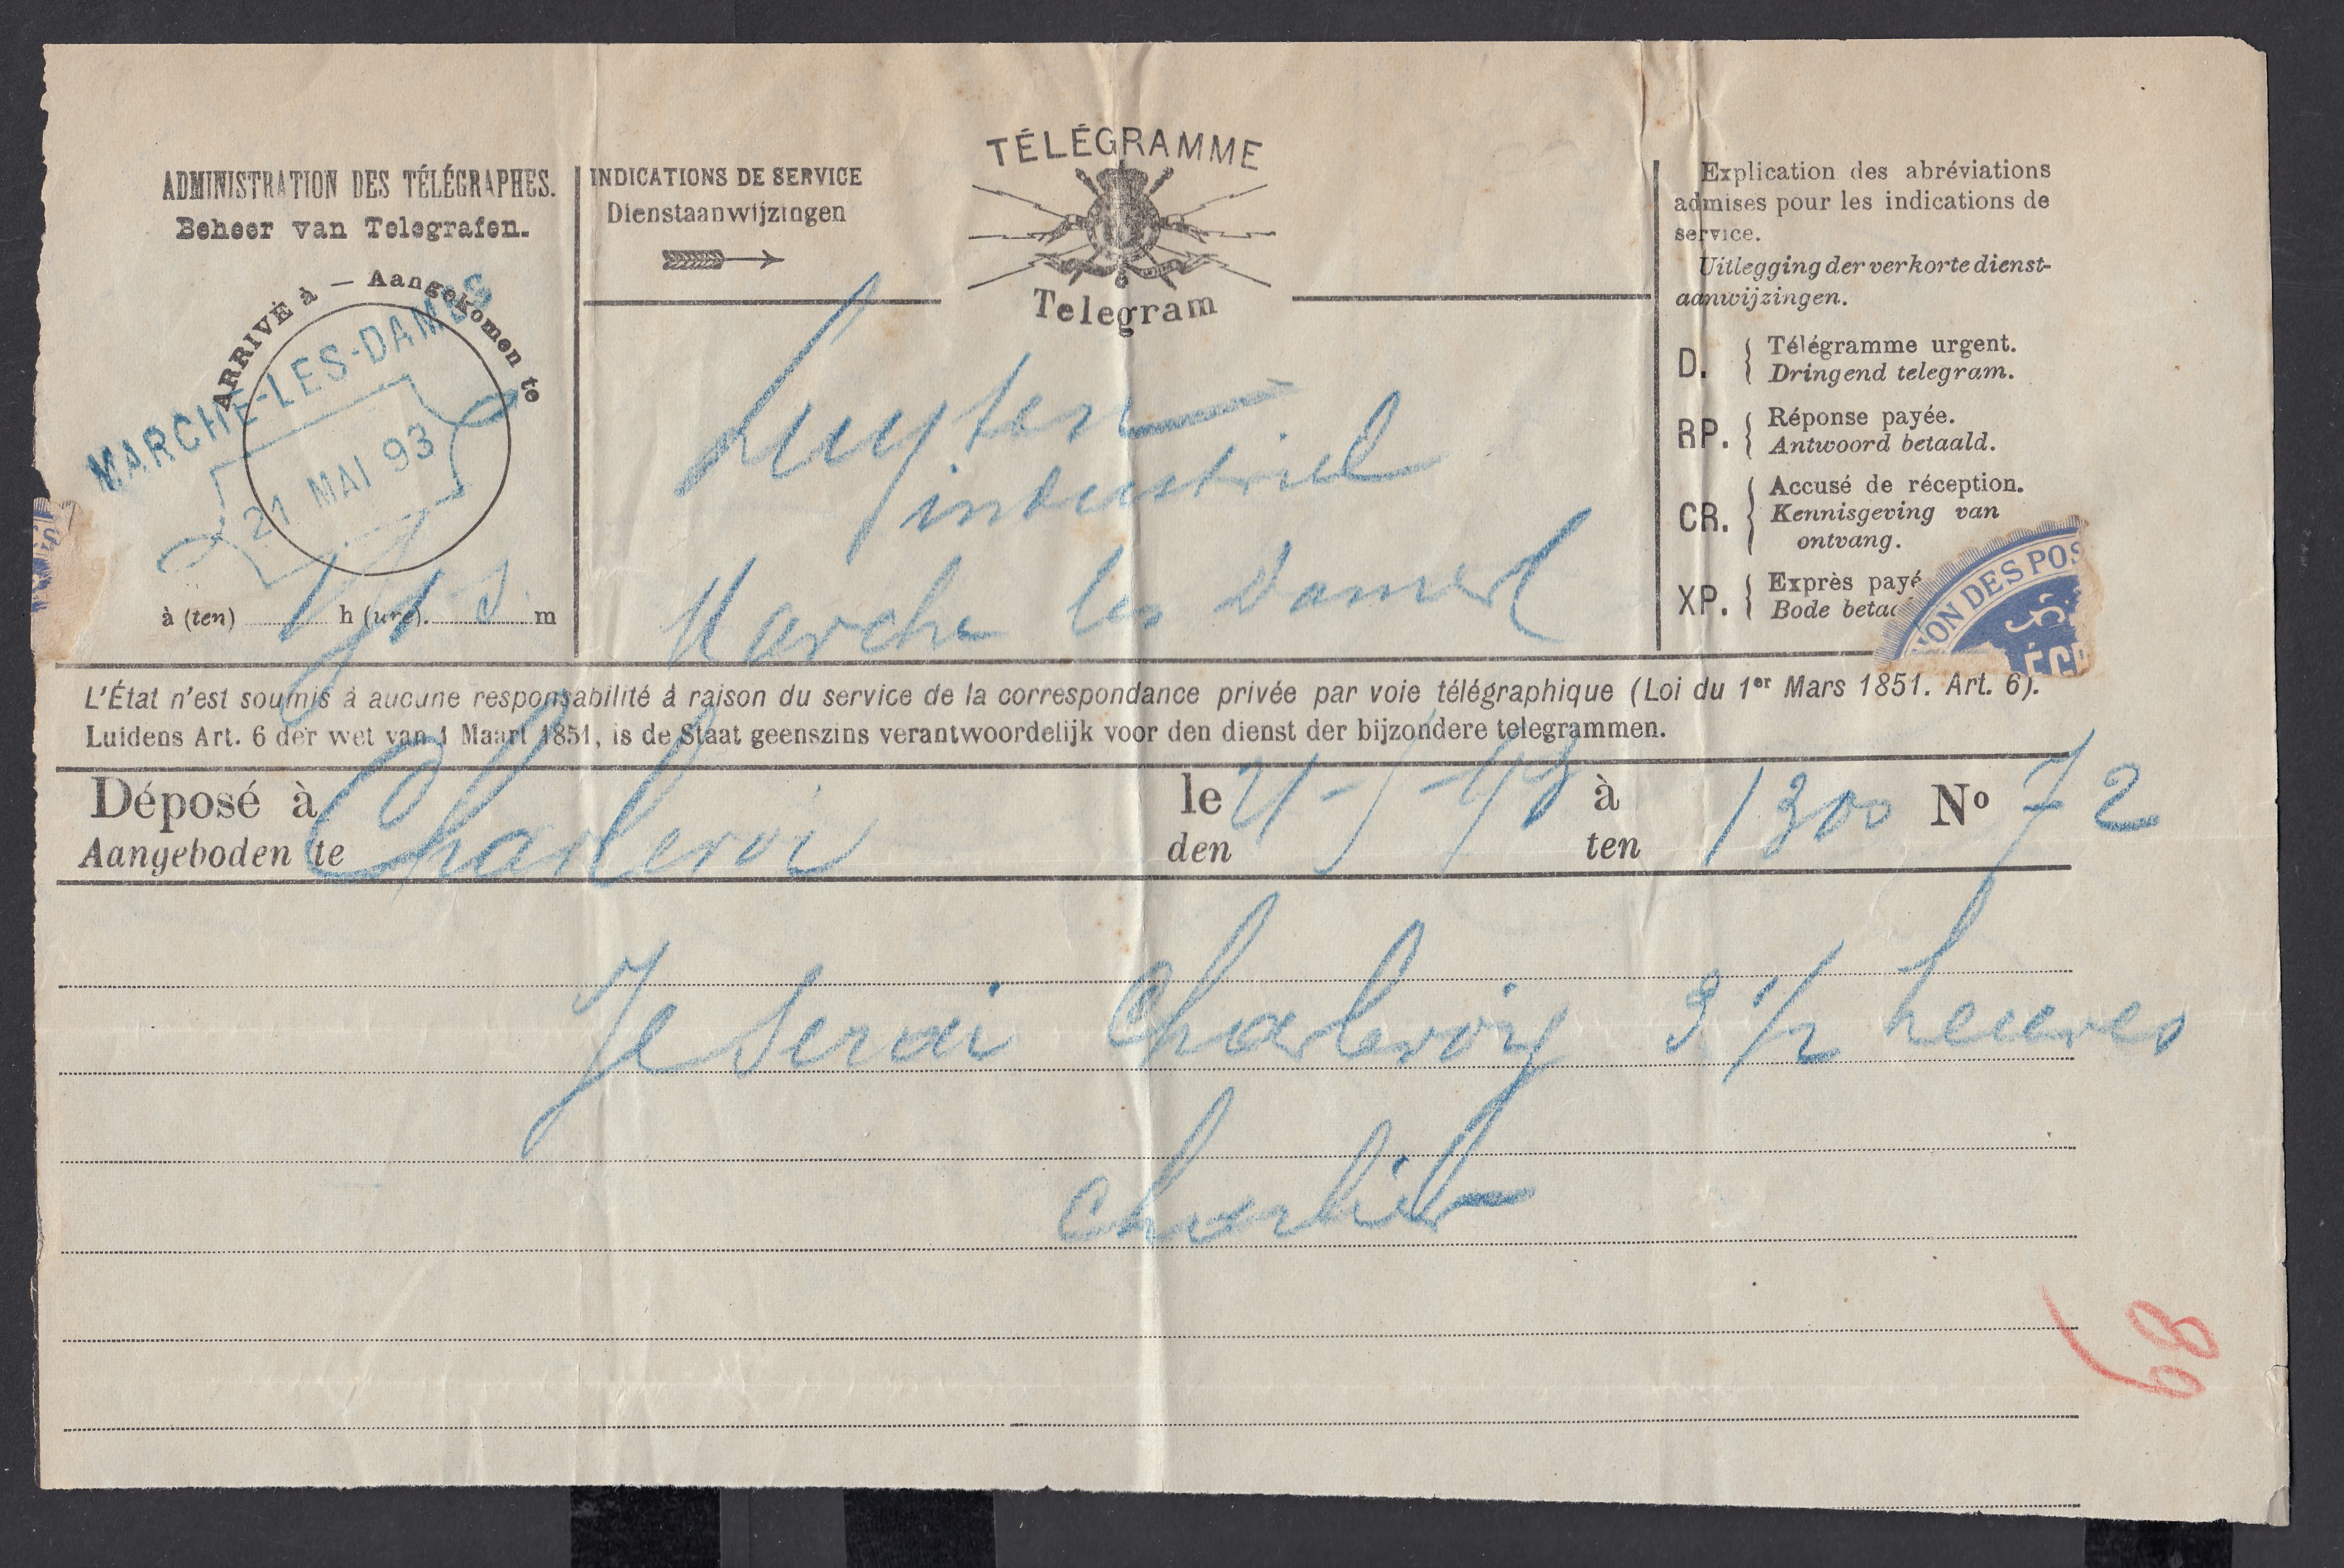 TÉLÉGRAMME
Telegram
ADMINISTRATION DES TÉLÉGRAPHES.
Beheer van Telegrafen.
ARRIVÉ à — Aangekomen te
MARCHE-LES-DAMES
21 MAI 93
à (ten) h (ure). m
INDICATIONS DE SERVICE
Dienstaanwijzingen
Luyten
industriel
Marche les Dames
Explication des abréviations
admises pour les indications de
service.
Uitlegging der verkorte dienst-
aanwijzingen.
D. { Télégramme urgent.
Dringend telegram.
RP. { Réponse payée.
Antwoord betaald.
CR. { Accusé de réception.
Kennisgeving van
ontvang.
XP. { Exprès payé
Bode betaa
ION DES POS
L'État n'est soumis à aucune responsabilité à raison du service de la correspondance privée par voie télégraphique (Loi du 1er Mars 1851. Art. 6).
Luidens Art. 6 der wet van 1 Maart 1851, is de Staat geenszins verantwoordelijk voor den dienst der bijzondere telegrammen.
Déposé à Charleroi le 21-5-93 à 1300 No 72
Aangeboden te den ten
Je serai Charleroi 3 1/2 heures
Charlier